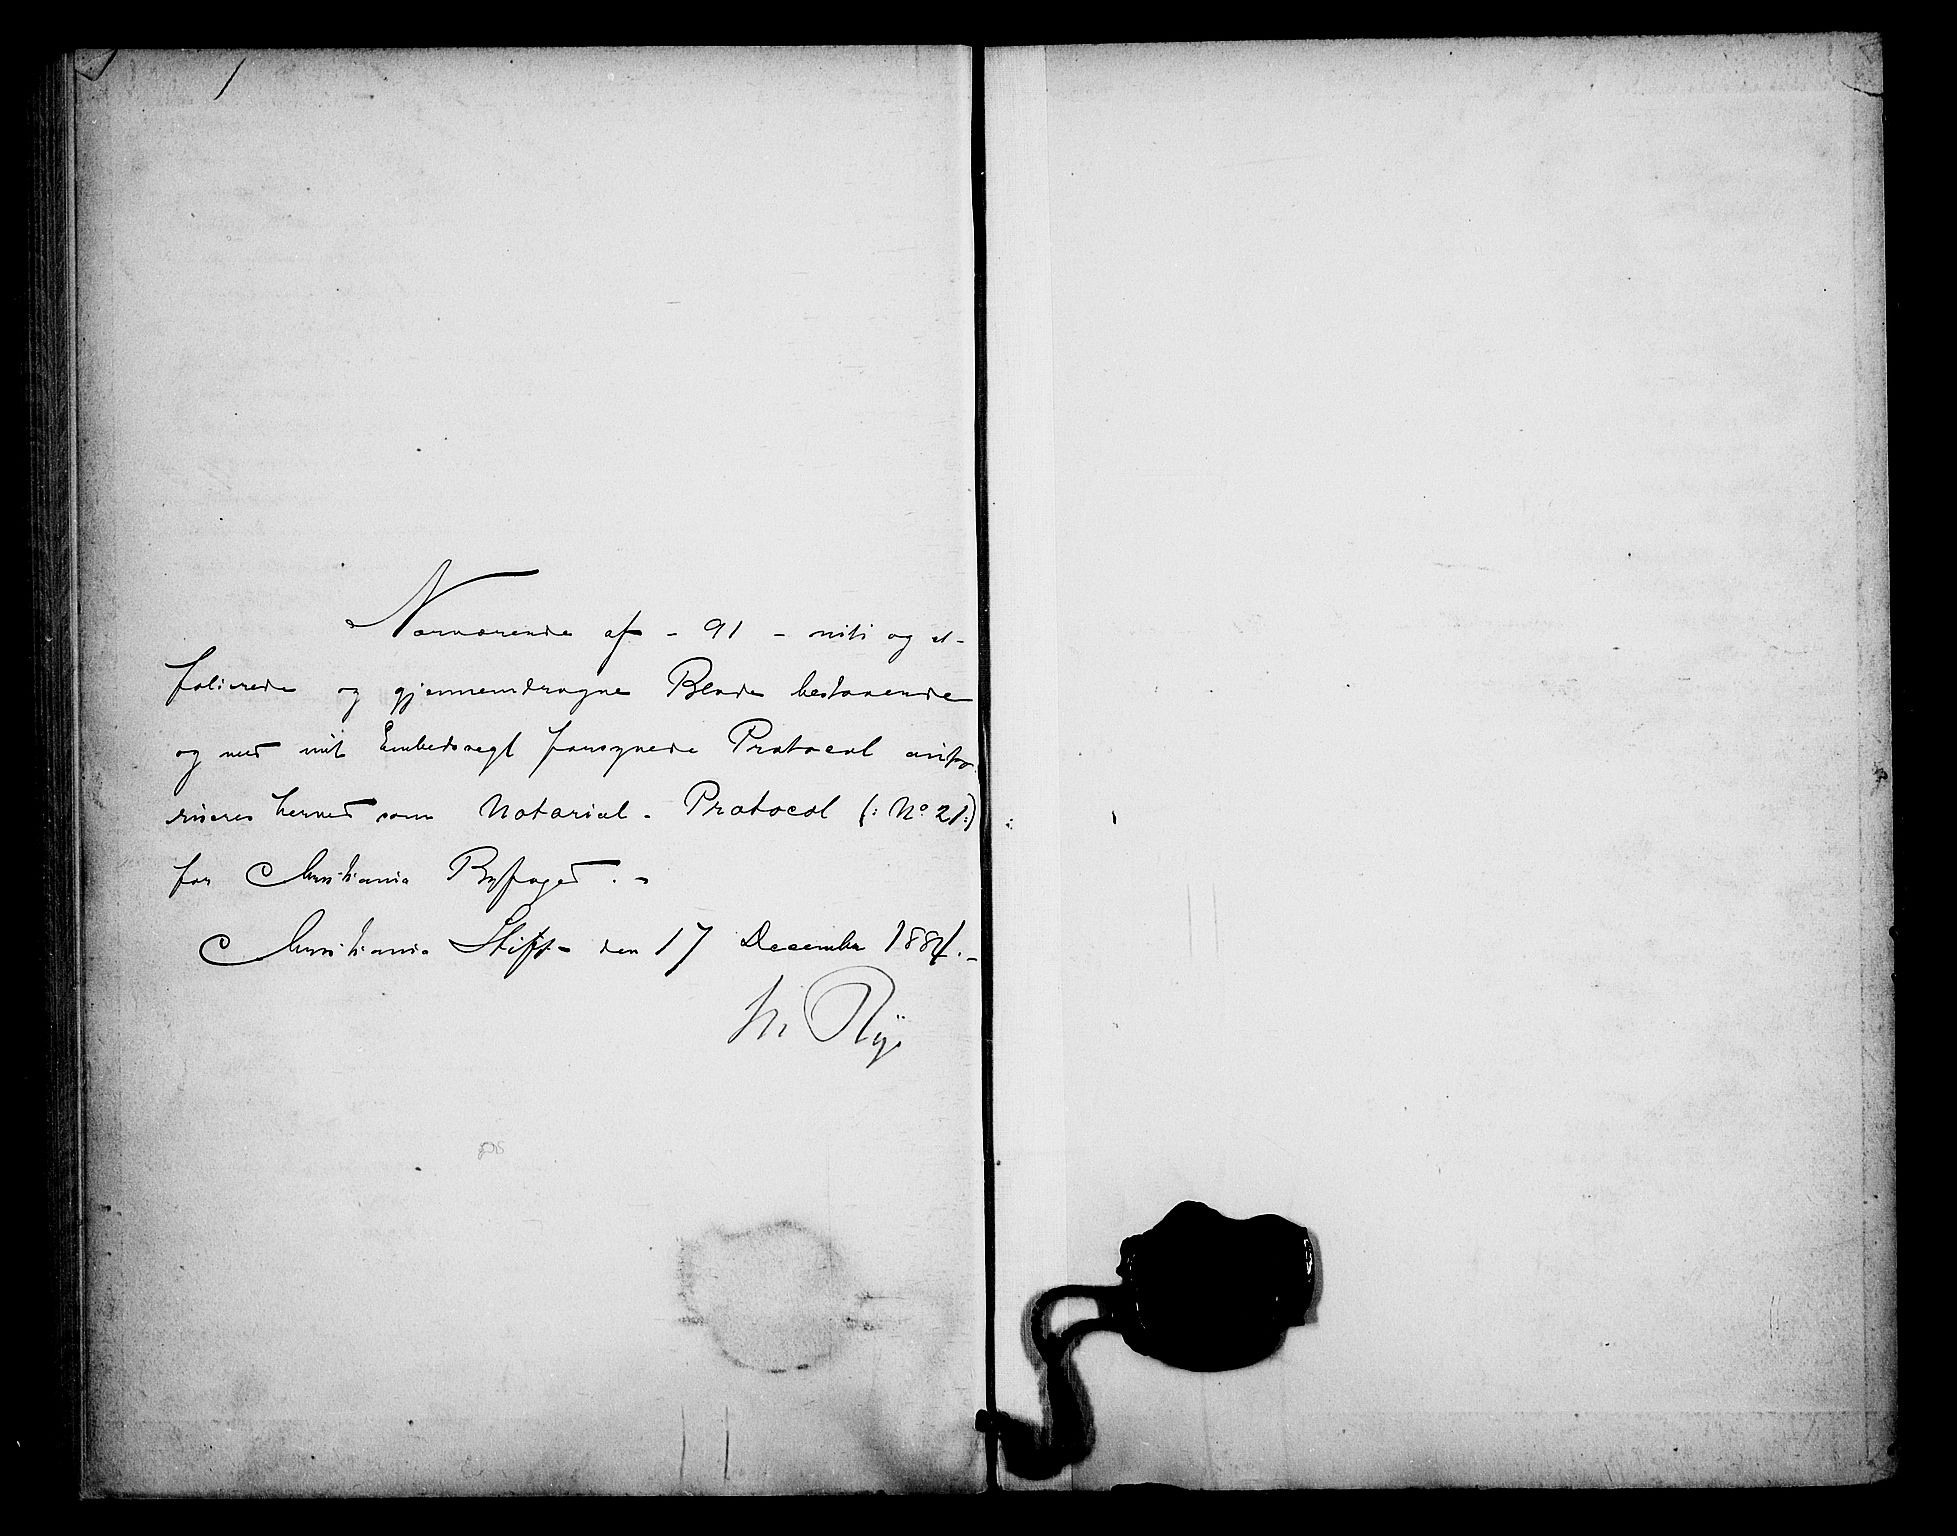 Nærværende af - 91 - niti og et -
folierede og gjennemdragne Blade bestaaende
og med mit Embedssegl forsynede Protocol auto-
riseres herved som Notarial - Protocol (: No 21 :)
for Christiania Byfoged. -
Christiania Stift - den 17 December 1884. -